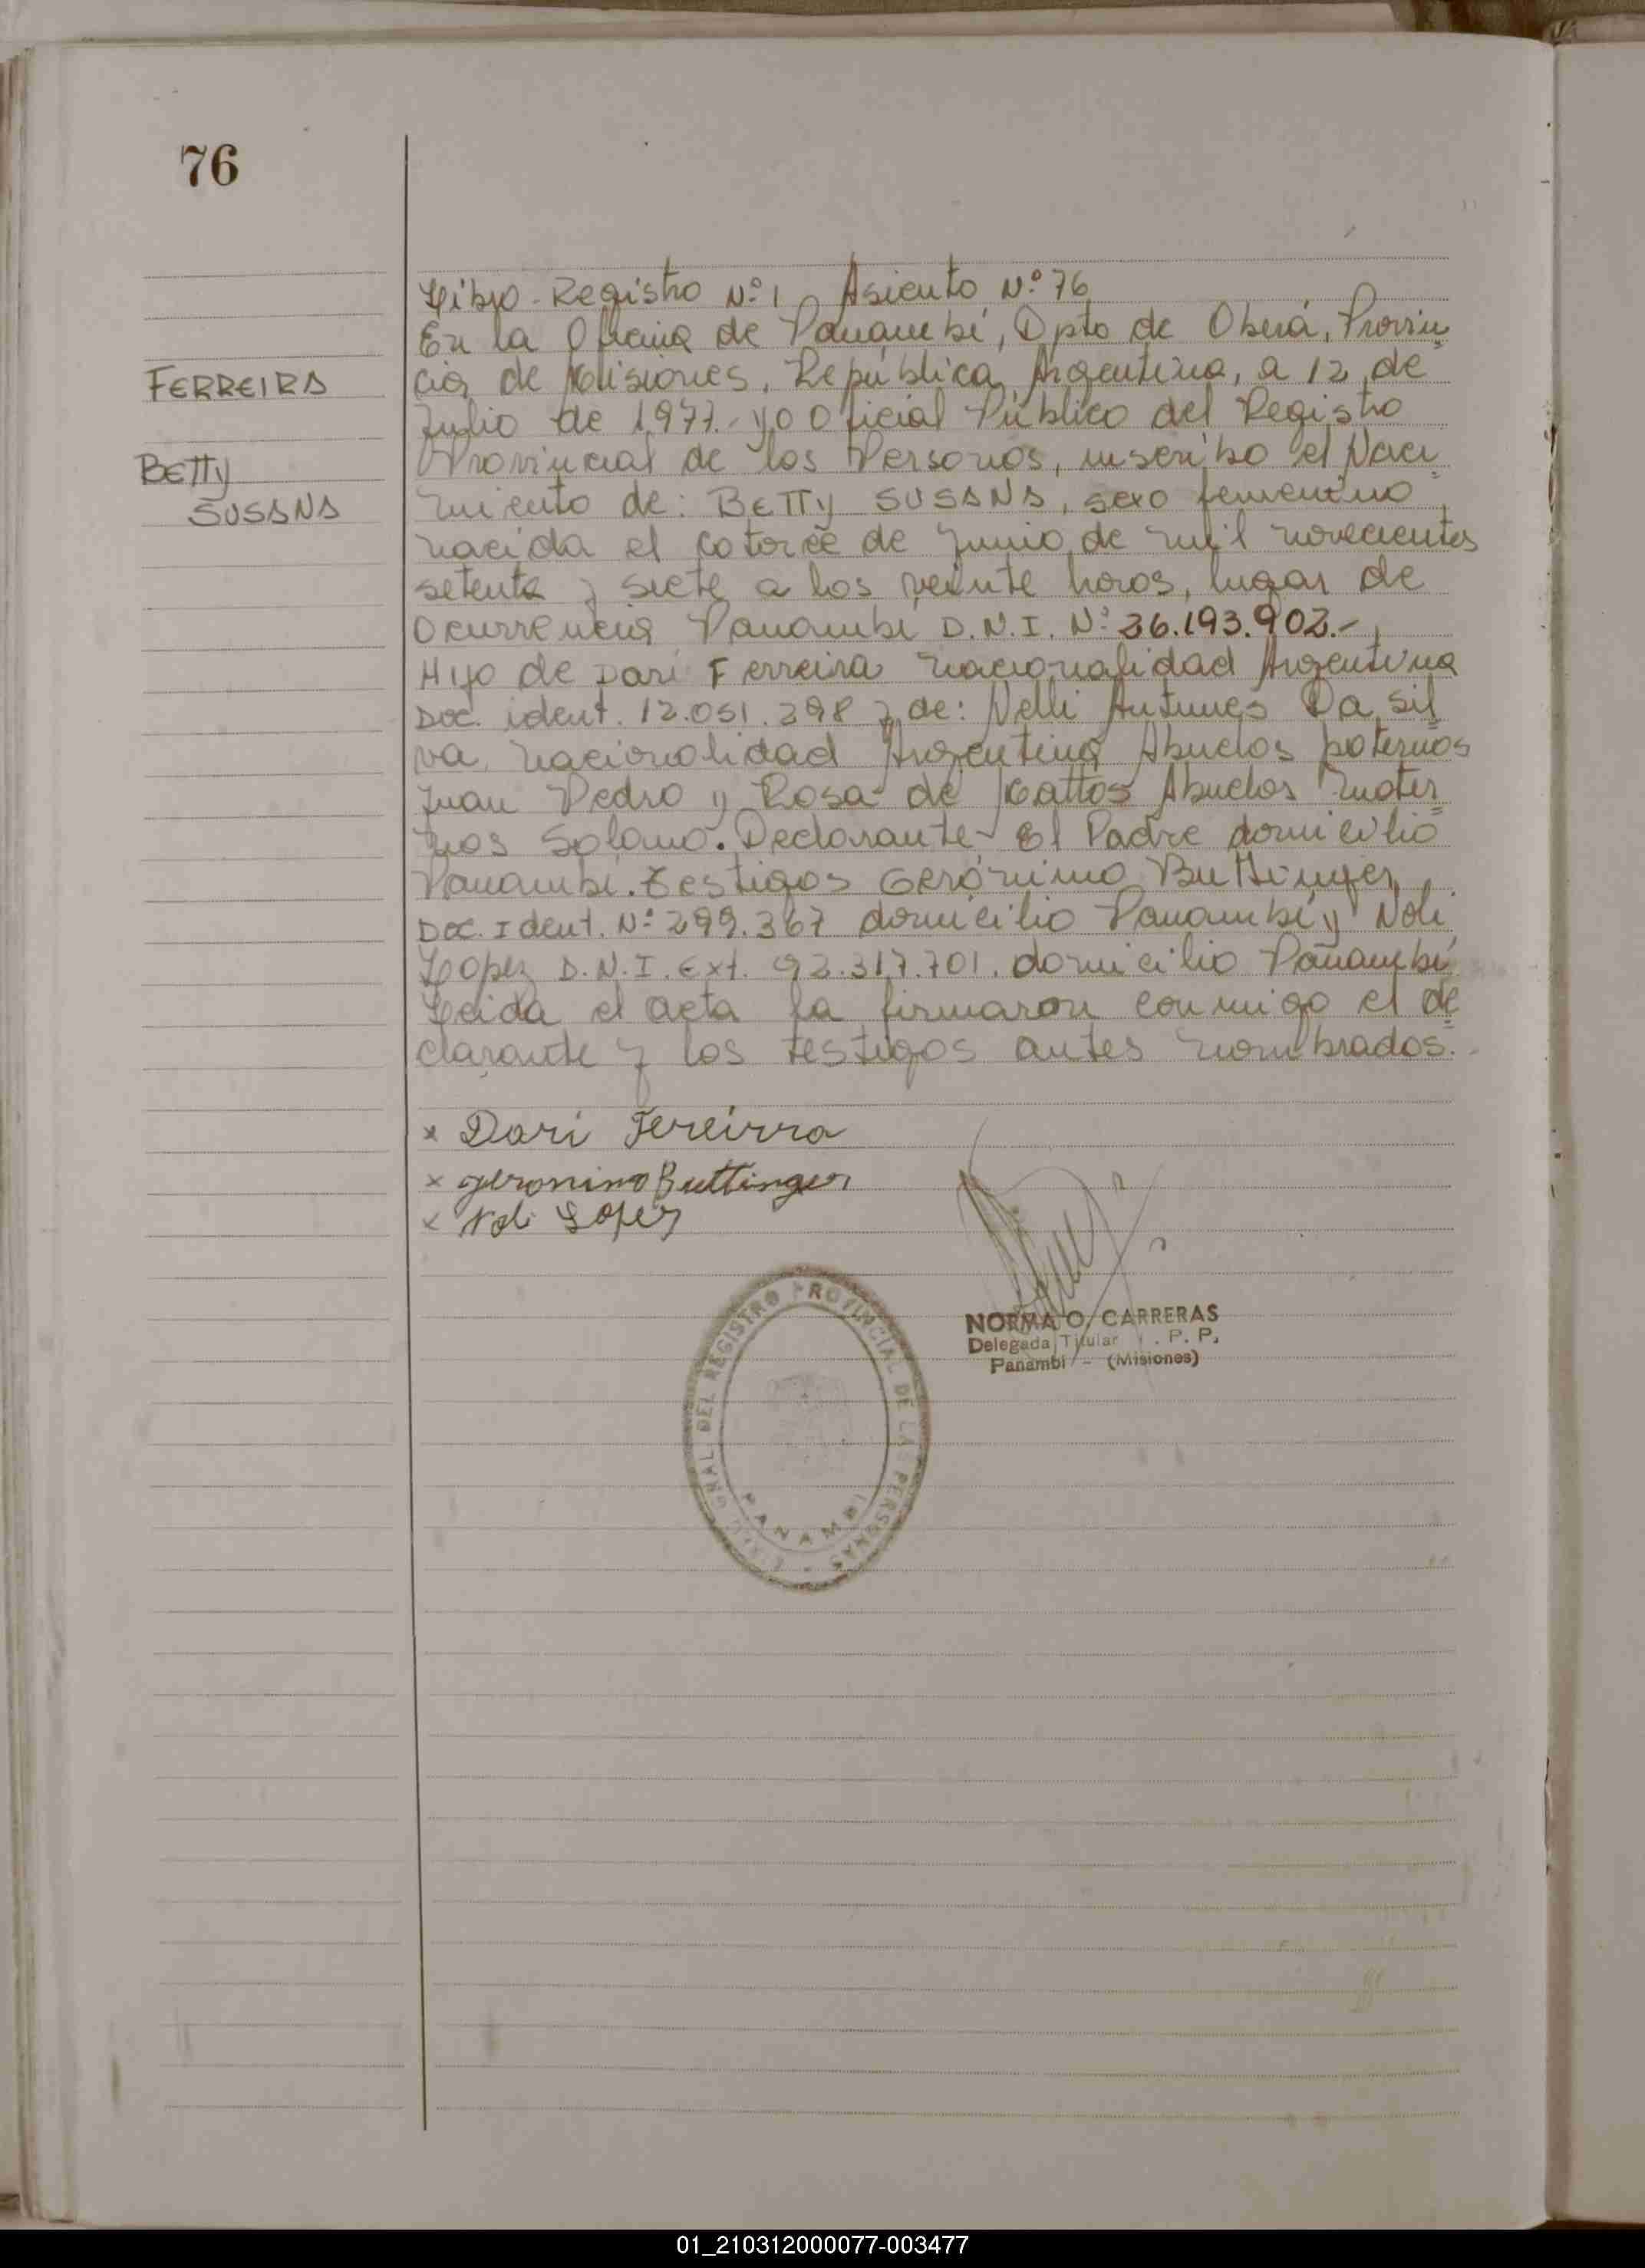 76
Libro-Registro Nº1 Asiento Nº 76
En la Oficina de Panambí, Dpto de Oberá, Provin
FERREIRA
cia, de Misiones, República Argentina, a 12 de
Julio de 1977.- yo Oficial Público del Registro
BETTY
Provincial de las Personas, inscribo el Naci
SUSANA
miento de: BETTY SUSANA, sexo femenino
nacida el catorce de Junio de mil novecientos
setenta y siete a las veinte horas, lugar de
Ocurrencia Panambí D.N.I. Nº 26.193.902.-
Hijo de Dari Ferreira nacionalidad Argentina
Doc. ident. 12.051.298 y de: Nelli Antunes Da Sil
va, nacionalidad Argentina Abuelos paternos
Juan Pedro y Rosa de Mattos Abuelos mater
nos Declarante El Padre domicilio
Panambí. Testigos Gerónimo Buttinger
Doc. Ident. Nº 299.367 domicilio Panambí y Noli
Lopez D.N.I. Ext. 92.317.701. domicilio Panambí
Leida el acta la firmaron conmigo el de
clarante y los testigos antes nombrados.
x Dari Fereirra
x Jeronimo Buttinger
x Noli Lopez
NORMA O. CARRERAS
Delegada Titular . P. P.
Panambí - (Misiones)
DEL REGISTRO PROVINCIAL DE LAS PERSONAS
PANAMBI
01_210312000077-003477